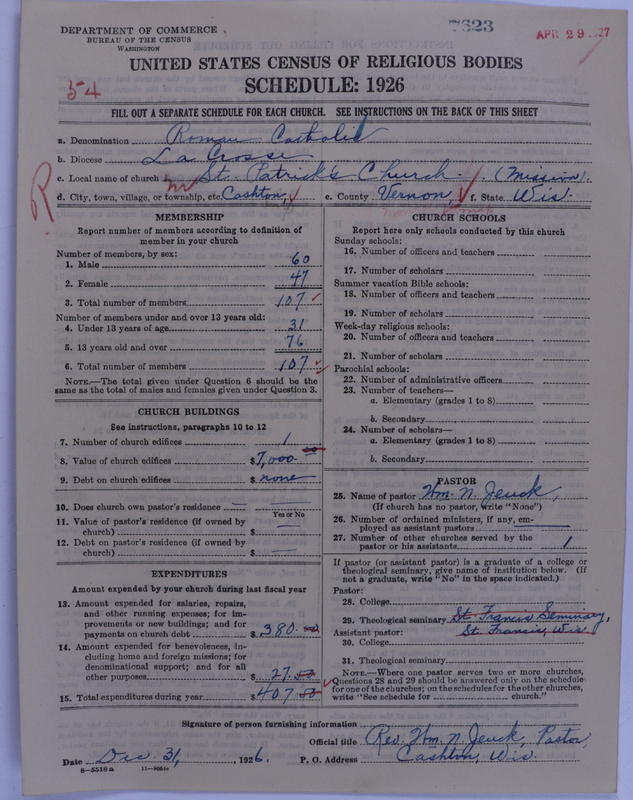 DEPARTMENT OF COMMERCE
BUREAU OF THE CENSUS
WASHINGTON
7623
APR 29 27
UNITED STATES CENSUS OF RELIGIOUS BODIES
SCHEDULE: 1926
54
FILL OUT A SEPARATE SCHEDULE FOR EACH CHURCH. SEE INSTRUCTIONS ON THE BACK OF THIS SHEET
a. Denomination Roman Catholic
b. Diocese La Crosse
c. Local name of church St. Patrick's Church. (Mission).
R
d. City, town, village, or township, etc. Cashton, e. County Vernon, f. State Wis.
MEMBERSHIP
Report number of members according to definition of member in your church
Number of members, by sex:
1. Male 60
2. Female 47
3. Total number of members 107
Number of members under and over 13 years old:
4. Under 13 years of age 31
5. 13 years old and over 76
6. Total number of members 107
NOTE.—The total given under Question 6 should be same as the total of males and females given under Question 3.
CHURCH BUILDINGS
See instructions, paragraphs 10 to 12
7. Number of church edifices 1
8. Value of church edifices $7,000
9. Debt on church edifices $ none
10. Does church own pastor's residence —
Yes or No
11. Value of pastor's residence (if owned by church) $ —
12. Debt on pastor's residence (if owned by church) $ —
EXPENDITURES
Amount expended by your church during last fiscal year
13. Amount expended for salaries, repairs, and other running expenses; for improvements or new buildings; and for payments on church debt $ 380.00
14. Amount expended for benevolences, including home and foreign missions; for denominational support; and for all other purposes $ 27.00
15. Total expenditures during year $ 407.00
CHURCH SCHOOLS
Report here only schools conducted by this church
Sunday schools:
16. Number of officers and teachers
17. Number of scholars
Summer vacation Bible schools:
18. Number of officers and teachers
19. Number of scholars
Week-day religious schools:
20. Number of officers and teachers
21. Number of scholars
Parochial schools:
22. Number of administrative officers
23. Number of teachers—
a. Elementary (grades 1 to 8)
b. Secondary
24. Number of scholars—
a. Elementary (grades 1 to 8)
b. Secondary
PASTOR
25. Name of pastor Wm. N. Jeuck,
(If church has no pastor, write "None")
26. Number of ordained ministers, if any, employed as assistant pastors —
27. Number of other churches served by the pastor or his assistants 1
If pastor (or assistant pastor) is a graduate of a college or theological seminary, give name of institution below. (If not a graduate, write "No" in the space indicated.)
Pastor:
28. College
29. Theological seminary St. Francis Seminary,
Assistant pastor: St. Francis, Wis.
30. College
31. Theological seminary
NOTE.—Where one pastor serves two or more churches, Questions 28 and 29 should be answered only on the schedule for one of the churches; on the schedules for the other churches, write "See schedule for church."
Signature of person furnishing information
Official title Rev. Wm. N. Jeuck, Pastor,
Date Dec 31, 1926. P. O. Address Cashton, Wis.
8-5518a